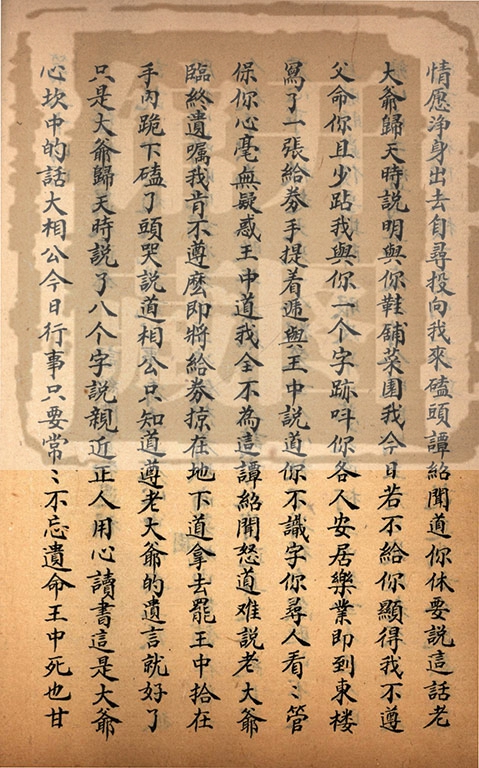 情愿净身出去自尋投向我來磕頭譚紹聞道你休要說這話老
大爺歸天時説明與你鞋舖菜園我今日若不給你顯得我不遵
父命你且少跕我與你一个字跡呌你各人安居樂業即到東楼
寫了一張給券手提着遞與王中說道你不識字你尋人看〻管
保你心毫無疑惑王中道我全不為這譚紹聞怒道难説老大爺
臨終遺嘱我肯不遵麽即將給券掠在地下道拿去罷王中拾在
手內跪下磕了頭哭説道相公只知道遵老大爺的遺言就好了
只是大爺歸天時説了八个字説親近正人用心讀書這是大爺
心坎中的話大相公今日行事只要常〻不忘遺命王中死也甘